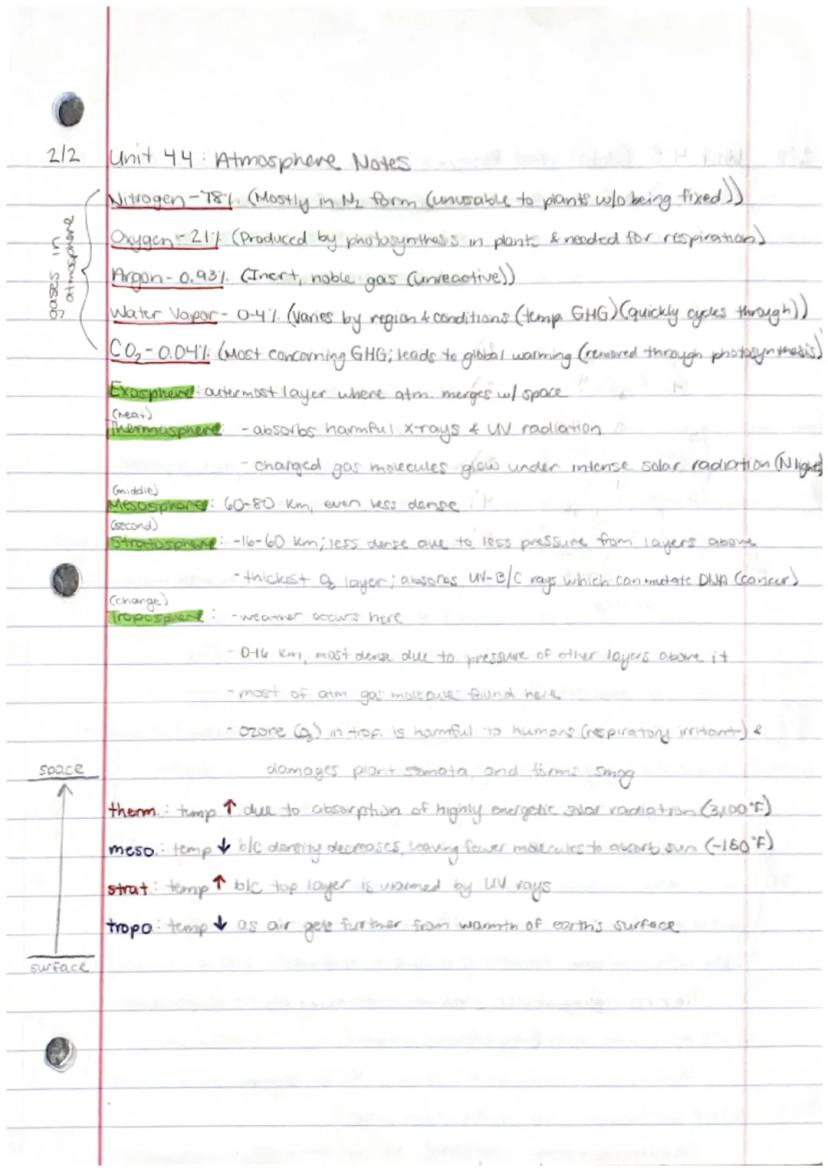 2/2 Unit 4.4: Atmosphere Notes
gases in atmosphere
Nitrogen - 78% (Mostly in N₂ form (unusable to plants w/o being fixed))
Oxygen - 21% (Produced by photosynthesis in plants & needed for respiration)
Argon - 0.93% (Inert, noble gas (unreactive))
Water Vapor - 0-4% (Varies by region & conditions (temp GHG) (quickly cycles through))
CO₂ - 0.04% (Most concerning GHG; leads to global warming (removed through photosynthesis)
Exosphere: outermost layer where atm. merges w/ space
(heat)
Thermosphere: - absorbs harmful x-rays & UV radiation
- charged gas molecules glow under intense solar radiation (N lights)
(middle)
Mesosphere: 60-80 km, even less dense
(second)
Stratosphere: -16-60 km; less dense due to less pressure from layers above
- thickest O₃ layer; absorbs UV-B/C rays which can mutate DNA (cancer)
(change)
Troposphere: - weather occurs here
- 0-16 km, most dense due to pressure of other layers above it
- most of atm gas molecules found here
- ozone (O₃) in trop. is harmful to humans (respiratory irritant) &
damages plant stomata, and forms smog
space
therm.: temp ↑ due to absorption of highly energetic solar radiation (3,100°F)
meso.: temp ↓ b/c density decreases, leaving fewer molecules to absorb sun (-150°F)
strat: temp ↑ b/c top layer is warmed by UV rays
tropo: temp ↓ as air gets further from warmth of earth's surface
surface